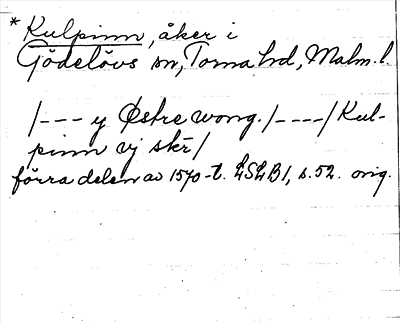 * Kulpinn, åker i
Gödelövs sn, Torna hd, Malm. l.
/--- y Østre wong. /----/ Kul-
pinn vj skr/
förra delen av 1570-t. LSLB1, s. 52. orig.